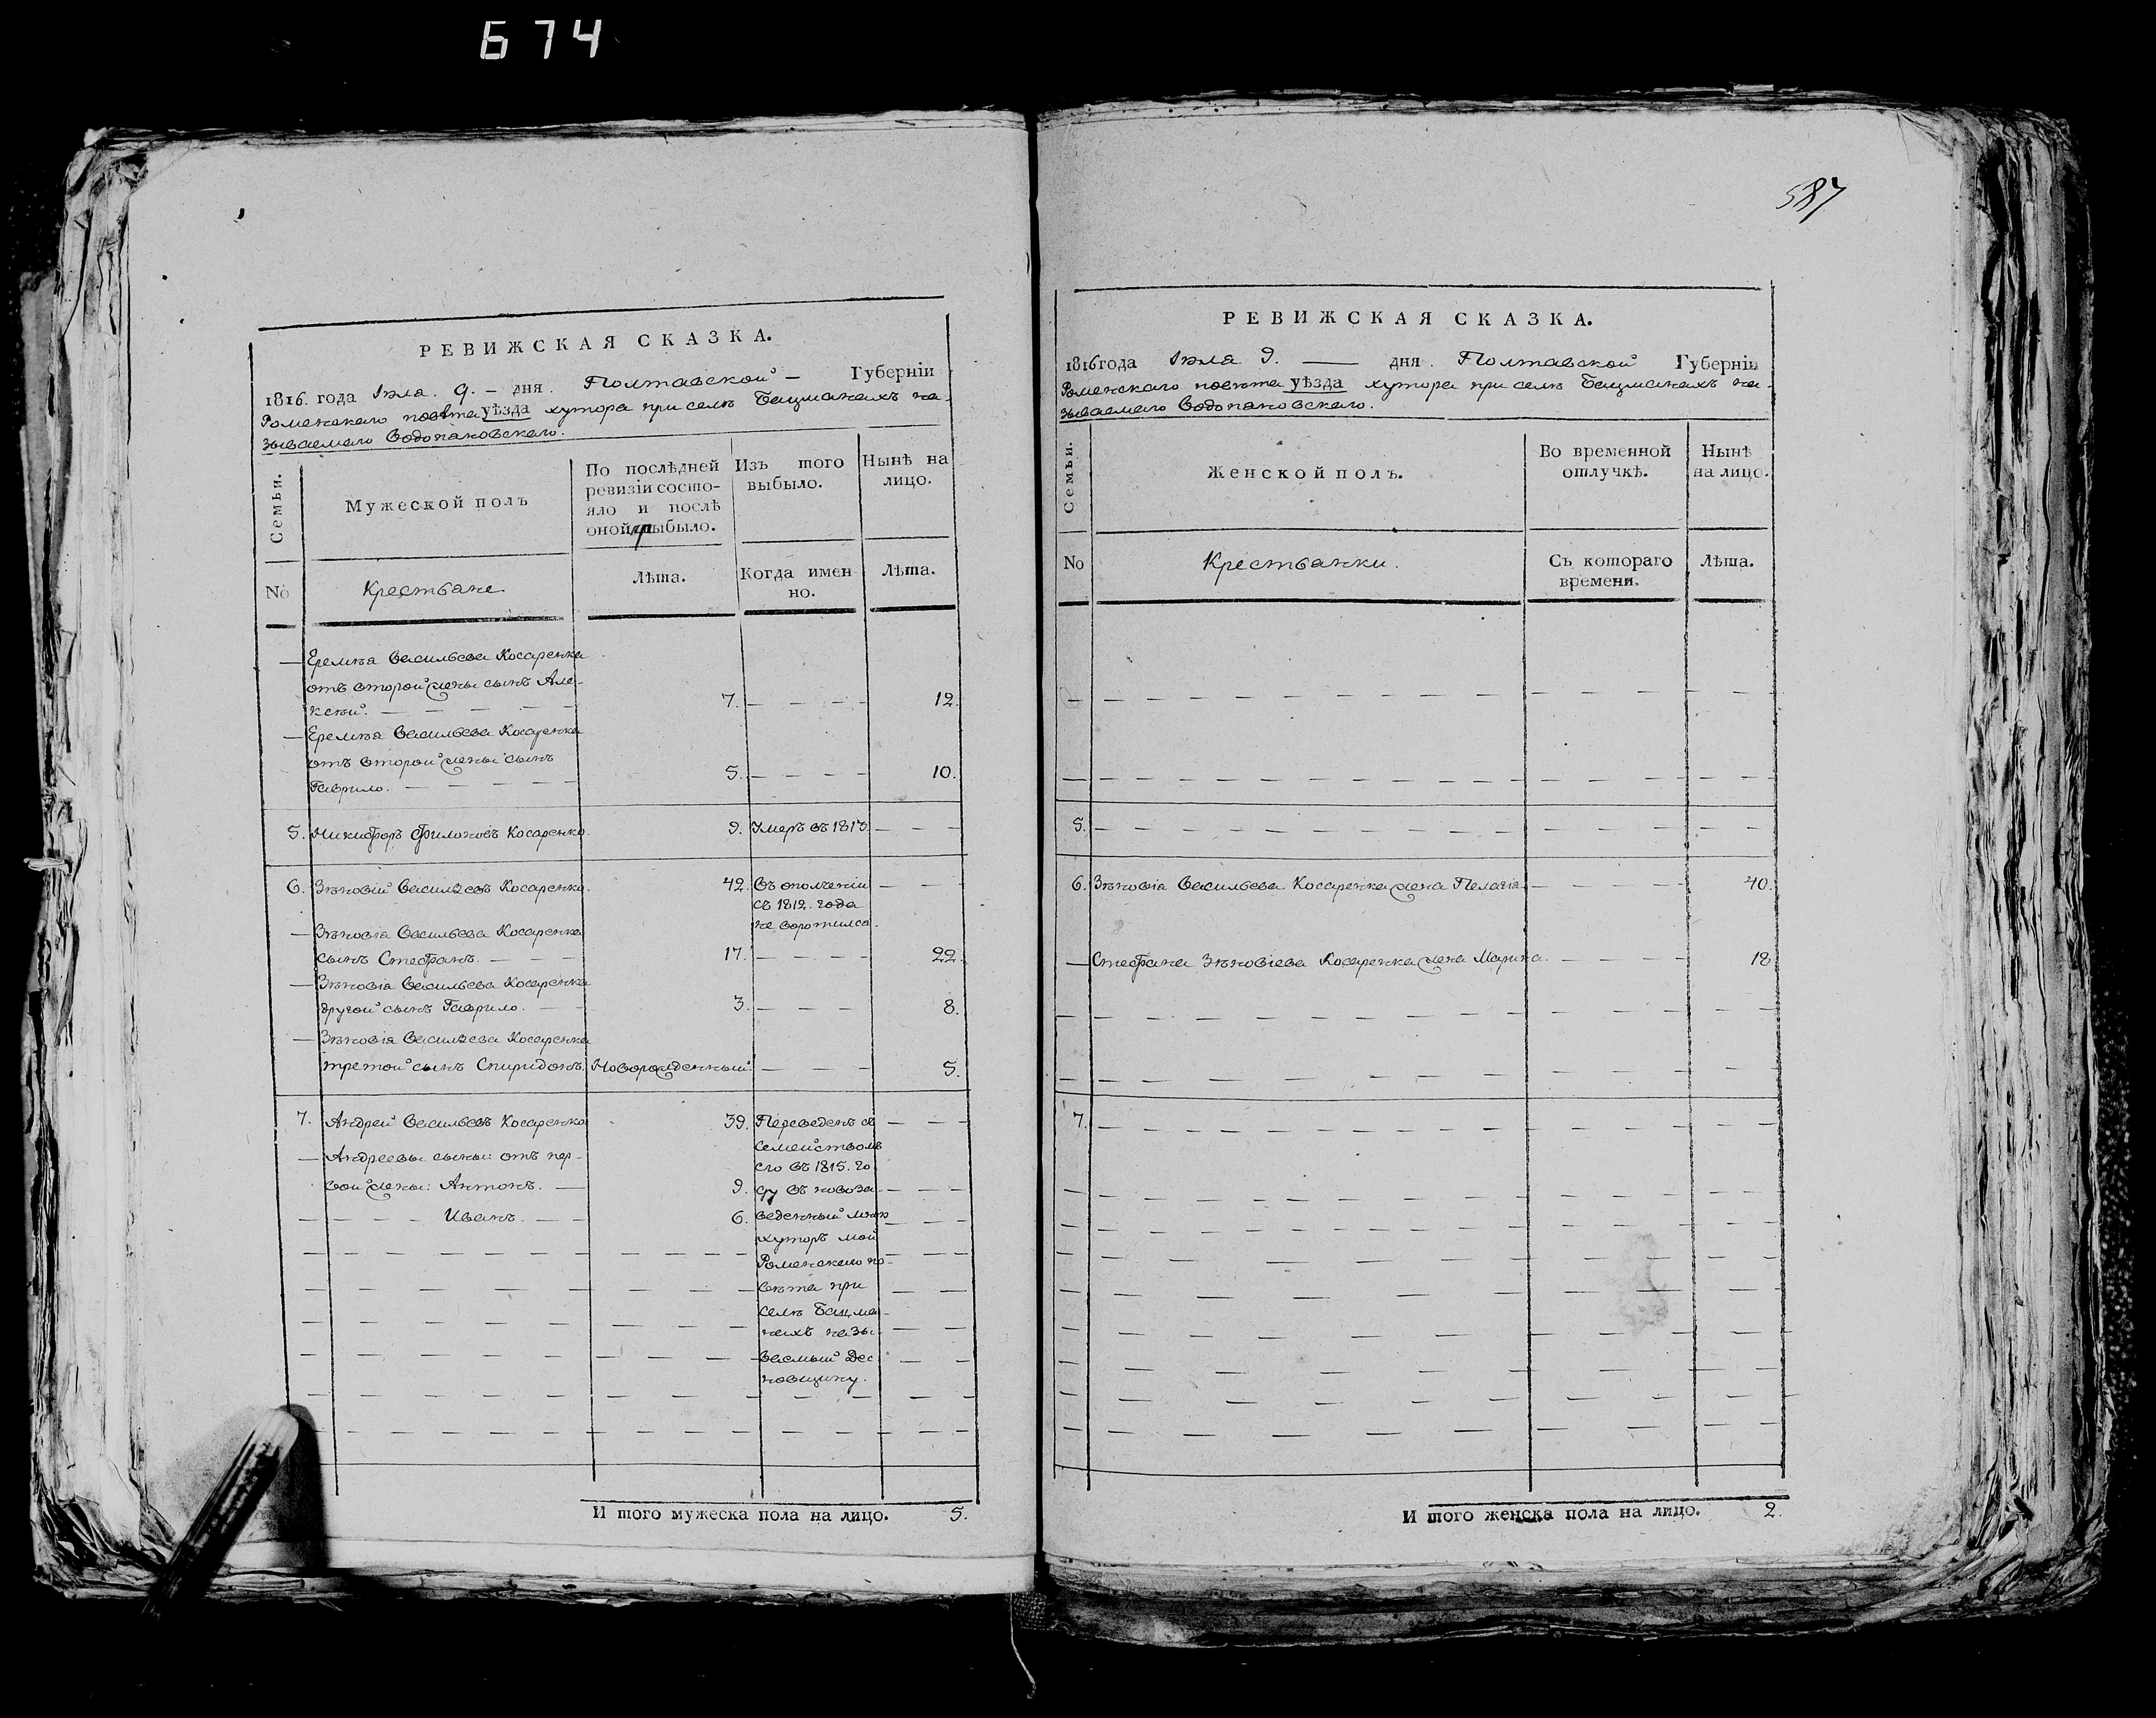 674
РЕВИЖСКАЯ СКАЗКА.
1816. года Іюля. 9. – дня. Полтавской – Губерніи
Роменскаго повѣта уѣзда хутора при селѣ Бацманахъ на-
зываемаго Водопановскаго.
Семьи.
Мужеской полъ
По послѣдней ревизіи состо-яло и послѣ оной прибыло.
Изъ того выбыло.
Нынѣ на лицо.
No
Крестьане
Лѣта.
Когда имен но.
Лѣта.
— Еремѣа Васильева Косаренка
отъ второй жены сынъ Але-
ксѣй. 7. 12.
— Еремѣа Васильева Косаренка
отъ второй жены сынъ
Гаврило. 5. 10.
5. Никифоръ Филоновъ Косаренко. 9. Умеръ въ 1813.
6. Зѣновій Васильевъ Косаренко. 42. Въ ополченіи
съ 1812. года
не воротился.
— Зѣновіа Васильева Косаренка
сынъ Стефанъ. 17. 22.
— Зѣновіа Васильева Косаренка
другой сынъ Гаврило. 3. 8.
— Зѣновіа Васильева Косаренка
третой сынъ Спиридонъ. Новорожденный. 5.
7. Андрей Васильевъ Косаренко 39. Переведенъ съ
семействомъ
— Андреевы сыны: отъ пер-
его въ 1815. го
вой жены: Антонъ. — 9. ду въ новоза-
Иванъ. 6. веденный мною
хуторъ мой
Роменскаго по-
вѣта при
селѣ Бацма-
нахъ назы-
ваемый Дес
новщину.
И того мужеска пола на лицо. 5.
587
РЕВИЖСКАЯ СКАЗКА.
1816 года Іюля 9. — дня. Полтавской Губерніи
Роменскаго повѣта уѣзда хутора при селѣ Бацманахъ на-
зываемаго Водопановскаго.
Семьи.
Женской полъ.
Во временной отлучкѣ.
Нынѣ на лицо.
No
Крестьанки.
Съ котораго времени.
Лѣта.
5.
6. Зѣновіа Васильева Косаренка жена Пелагіа. 40.
— Стефана Зѣновіева Косаренка жена Марина. 18
7.
И того женска пола на лицо. 2.